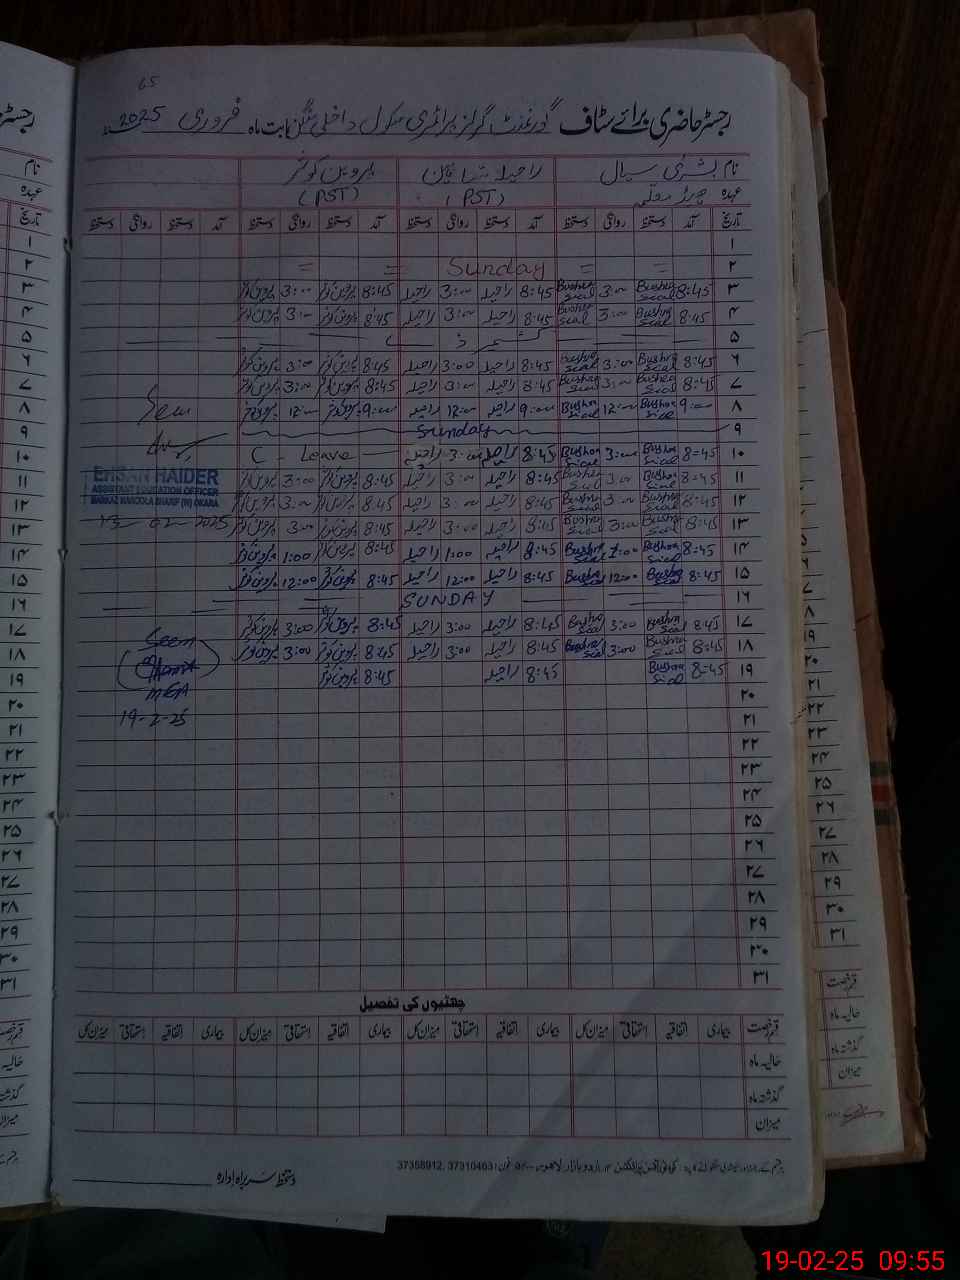 65
رجسٹر حاضری برائے سٹاف گورنمنٹ گرلز پرائمری سکول داخلی بابت ماہ فروری 2025
نام بشریٰ سیال راحیلہ پروین کوثر
عہدہ (PST) (PST)
تاریخ آمد دستخط روانگی دستخط آمد دستخط روانگی دستخط آمد دستخط روانگی دستخط آمد دستخط روانگی دستخط
۱
۲ = = Sunday = =
۳ 8:45 Bushra Seial 3:00 Bushra Seial 8:45 راحیلہ 3:00 راحیلہ 8:45 پروین کوثر 3:00 پروین کوثر
۴ 8:45 Bushra Seial 3:00 Bushra Seial 8:45 راحیلہ 3:00 راحیلہ 8:45 پروین کوثر 3:00 پروین کوثر
۵ کشمیر ڈے
۶ 8:45 Bushra Seial 3:00 Bushra Seial 8:45 راحیلہ 3:00 راحیلہ 8:45 پروین کوثر 3:00 پروین کوثر
۷ 8:45 Bushra Seial 3:00 Bushra Seial 8:45 راحیلہ 3:00 راحیلہ 8:45 پروین کوثر 3:00 پروین کوثر
۸ 9:00 Bushra Seial 12:00 Bushra Seial 9:00 راحیلہ 12:00 راحیلہ 9:00 پروین کوثر 12:00 پروین کوثر Seen
۹ Sunday
۱۰ 8:45 Bushra Seial 3:00 Bushra Seial 8:45 راحیلہ 3:00 راحیلہ C - Leave
EHSAN HAIDER
۱۱ 8:45 Bushra Seial 3:00 Bushra Seial 8:45 راحیلہ 3:00 راحیلہ 8:45 پروین کوثر 3:00 پروین کوثر
ASSISTANT EDUCATION OFFICER
۱۲ 8:45 Bushra Seial 3:00 Bushra Seial 8:45 راحیلہ 3:00 راحیلہ 8:45 پروین کوثر 3:00 پروین کوثر
SHARIF (W) OKARA
۱۳ 8:45 Bushra Seial 3:00 Bushra Seial 8:45 راحیلہ 3:00 راحیلہ 8:45 پروین کوثر 3:00 پروین کوثر 13-02-2025
۱۴ 8:45 Bushra Seial 1:00 Bushra Seial 8:45 راحیلہ 1:00 راحیلہ 8:45 پروین کوثر 1:00 پروین کوثر
۱۵ 8:45 Bushra Seial 12:00 Bushra Seial 8:45 راحیلہ 12:00 راحیلہ 8:45 پروین کوثر 12:00 پروین کوثر
۱۶ SUNDAY
۱۷ 8:45 Bushra Seial 3:00 Bushra Seial 8:45 راحیلہ 3:00 راحیلہ 8:45 پروین کوثر 3:00 پروین کوثر Seen
۱۸ 8:45 Bushra Seial 3:00 Bushra Seial 8:45 راحیلہ 3:00 راحیلہ 8:45 پروین کوثر 3:00 پروین کوثر
۱۹ 8:45 Bushra Seial 8:45 راحیلہ 8:45 پروین کوثر
MEA
۲۰
19-2-25
۲۱
۲۲
۲۳
۲۴
۲۵
۲۶
۲۷
۲۸
۲۹
۳۰
۳۱
چھٹیوں کی تفصیل
قسم رخصت بیماری اتفاقیہ استحقاقی میزان کل بیماری اتفاقیہ استحقاقی میزان کل بیماری اتفاقیہ استحقاقی میزان کل بیماری اتفاقیہ استحقاقی میزان کل
حالیہ ماہ
گذشتہ ماہ
میزان
اردو بازار لاہور فون: 37310403, 37358912
دستخط سربراہ ادارہ
19-02-25 09:55